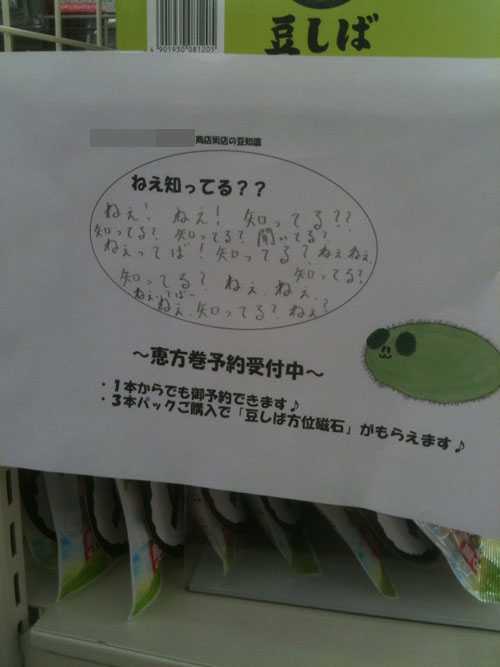 4 901930 081205
豆しば
商店街店の豆知識
ねえ知ってる??
ねぇ! ねぇ! 知ってる??
知ってる? 知ってる? 聞いてる?
ねぇってば! 知ってる? ねぇねぇ
知ってる?
知ってる? ねぇ、ねぇ、
ねぇってばー
ねぇ、知ってる? ねぇ?
~恵方巻予約受付中~
・1本からでも御予約できます♪
・3本パックご購入で「豆しば方位磁石」がもらえます♪